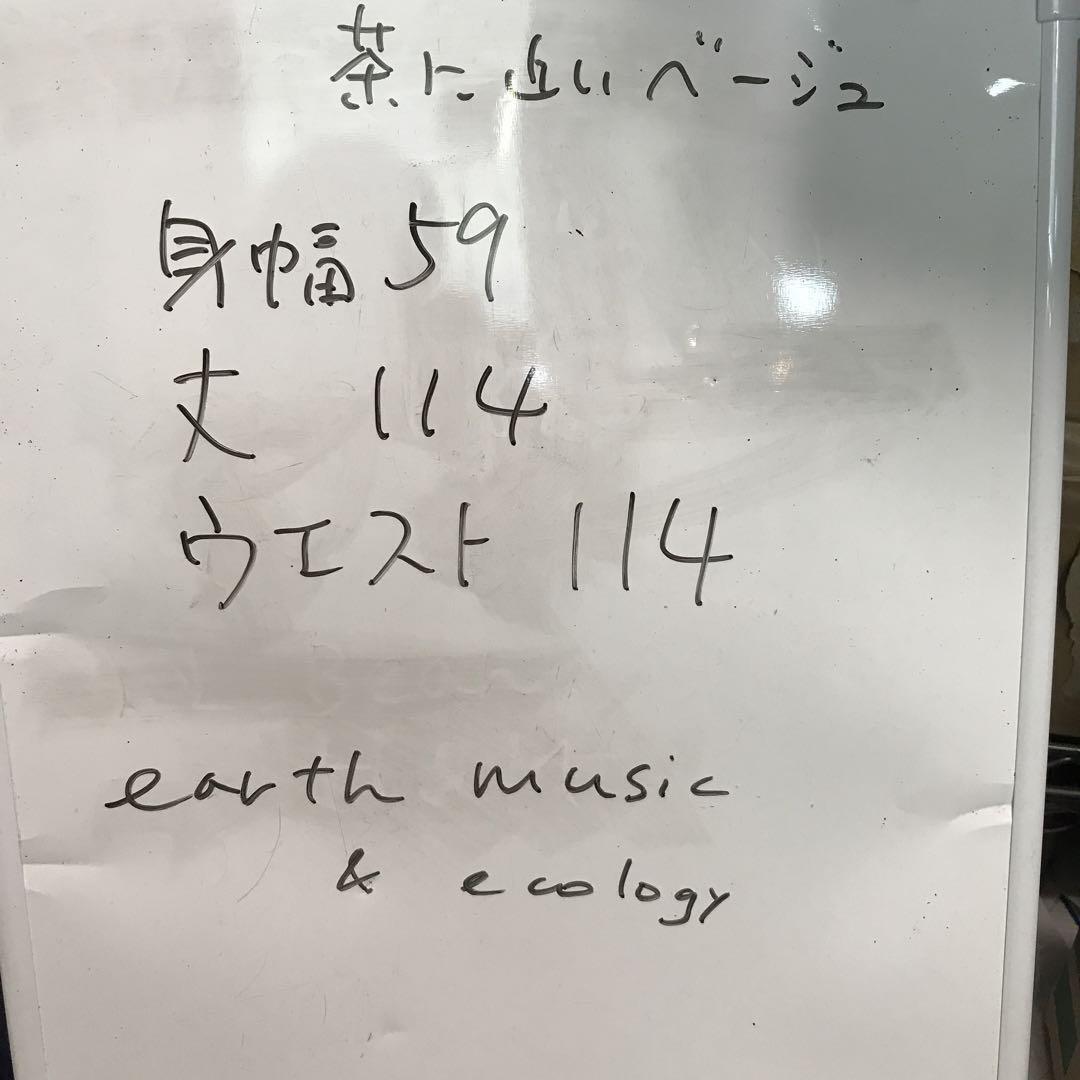 茶に近いベージュ
身幅 59
丈 114
ウエスト 114
earth music
& ecology